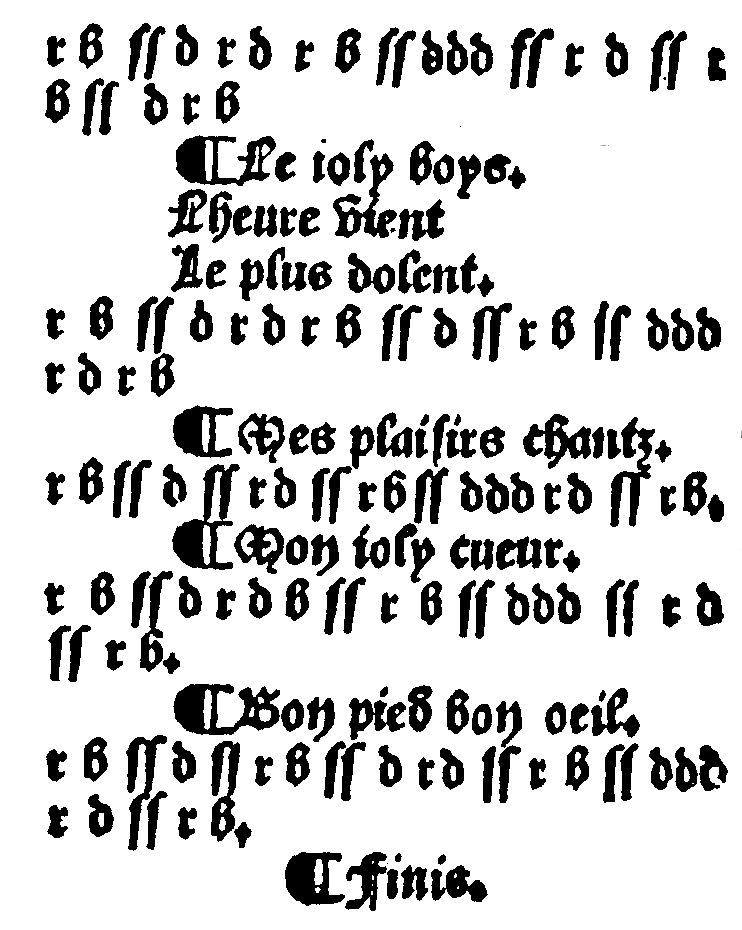 r b ſſ d r d r b ſſ ddd ſſ r d ſſ r
b ſſ d r b
¶Le ioly boys.
Lheure vient
Le plus dolent.
r b ſſ d r d r b ſſ d ſſ r b ſſ ddd
r d r b
¶Mes plaiſirs chantz.
r b ſſ d ſſ r d ſſ r b ſſ ddd r d ſſ r b.
¶Mon ioly cueur.
r b ſſ d r d b ſſ r b ſſ ddd ſſ r d
ſſ r b.
¶Bon pied bon oeil.
r b ſſ d ſſ r b ſſ d r d ſſ r b ſſ ddd
r d ſſ r b.
¶Finis.